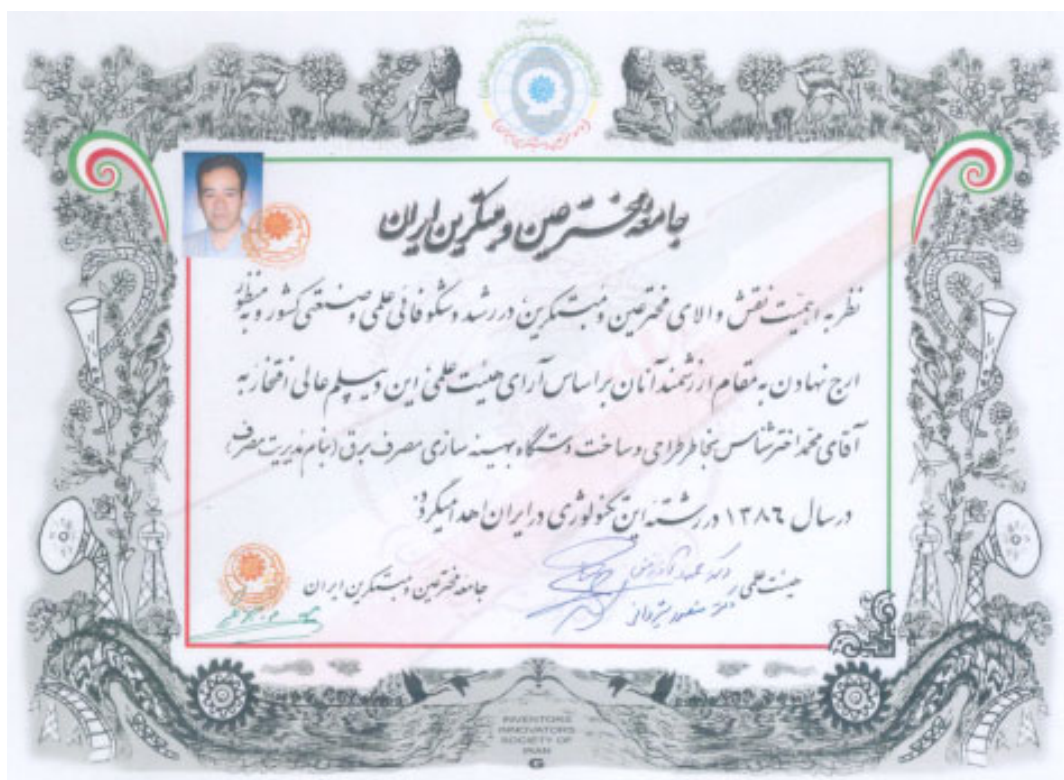 جامعه مخترعین و مبتکرین ایران
نظر به اهمیت نقش والای مخترعین و مبتکرین در رشد و شکوفائی علمی و صنعتی کشور و بمنظور
ارج نهادن به مقام ارزشمند آنان بر اساس آرای هیئت علمی این دیپلم عالی افتخار به
آقای محمد اخترشناس بخاطر طراحی و ساخت دستگاه بهینه سازی مصرف برق (بنام مدیریت مصرف)
در سال ۱۳۸۶ در رشته این تکنولوژی در ایران اهدا میگردد
هیئت علمی
دکتر منصور
جامعه مخترعین و مبتکرین ایران
INVENTORS
INNOVATORS
SOCIETY OF
IRAN
G